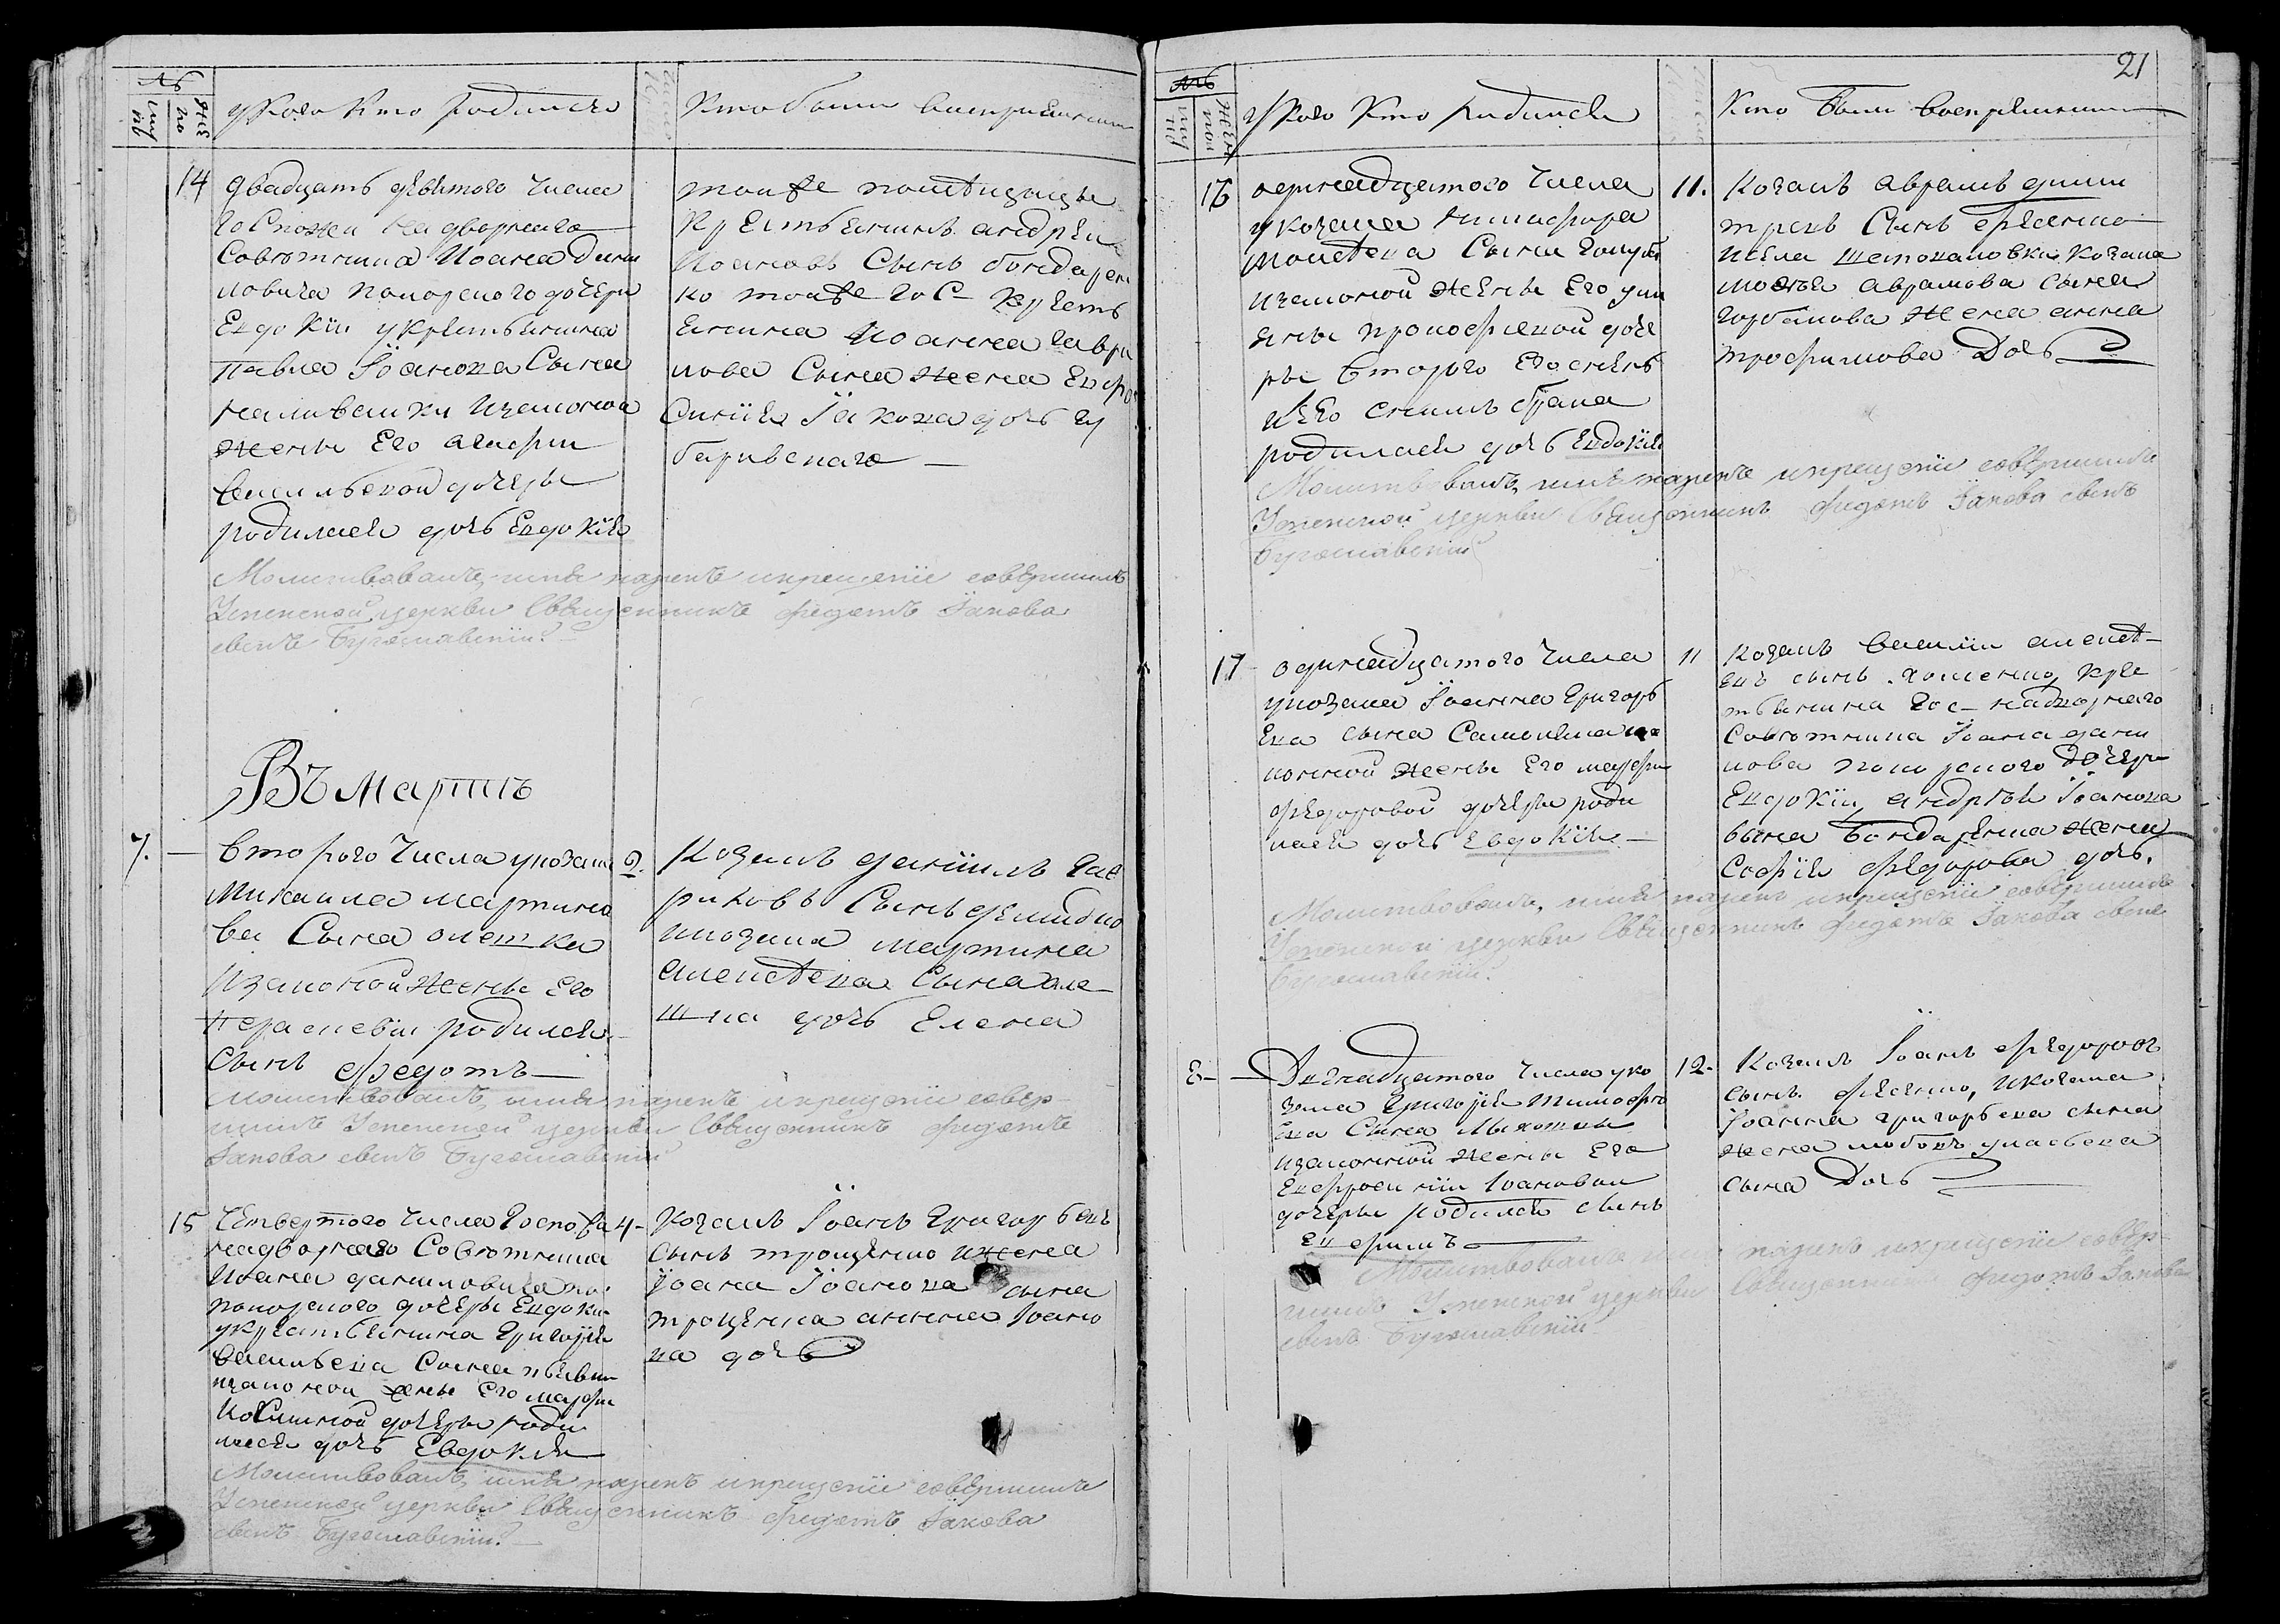 №
у кого кто родился
число
кто были восприемники
14 двадцать девятого числа
госпожи надворнаго
советника Иоанна Дани
ловича Полторского дочери
Евдокіи у крестьянина
Павла Іоанова сына
Наливайки изаконой
жены его агафіи
васильевой дочеры
родилася дочь Евдокія
тойже помѣщицы
крестьянинъ андрей
Иоановъ сынъ бондарен
ко тойже гос- кресть
янина Иоанна гаври
лова сына жена Евфро
синія Іакова дочь гу
баривскаго —
Молитвовалъ, имя нарекъ и крещеніе совершилъ
Успенской церкви Священникъ Федотъ Іакова
сынъ Бугославскій
Въ Мартѣ
7. — второго числа у козака
Михаила мартино
ва сына олешка
изаконой жены его
параскевіи родился
сынъ Федотъ —
2. Козакъ даніилъ гав
риловъ сынъ демидко
и козака мартина
алексѣева сына оле-
шка дочь Елена
Молитвовалъ, имя нарекъ и крещеніе совер-
шилъ Успенской церкви Священникъ Федотъ
Іакова сынъ Бугославскій
15 четвертого числа госпожи
надворнаго советника
Иоанна даниловича по
Полторского дочеры Евдокіи
у крестьянина Григорія
васильева сына
изаконой жены его марфи
Косминой дочеры роди
лася дочь Евдокія
4- козакъ Іоанъ Григорьевъ
сынъ троценко и жена
Іоана Іоанова сына
троценка анна Іоано
ва дочь
Молитвовалъ, имя нарекъ и крещеніе совершилъ
Успенской церкви Священникъ Федотъ Іакова
сынъ Бугославскій
21
№
у кого кто родился
кто были восприемники
16 одинадцатого числа
у козака Никифора
моисѣева сына голуба
изаконой жены его ули
яны прокофіевой доче
ры второго его снею
и его снимъ брака
родилася дочь Евдокія
11. козакъ аврамъ дими
тріевъ сынъ Фесенко
и села козака
мосѣя аврамова сына
горбанова жена анна
трофимова дочь
Молитвовалъ, имя нарекъ и крещеніе совершилъ
Успенской церкви Священникъ Федотъ Іакова сынъ
Бугославскій
17 одинадцатого числа
у козака Іоанна Григорь
ева сына Самойленка иза
конной жены его марфи
Федоровой дочеры роди
лася дочь Евдокія —
11 козакъ василій алексѣ-
евъ сынъ хоменко, кре
стьянина гос- надворнаго
советника Іоанна дани
лова Полторского дочери
Евдокіи андрѣя Іоанова
сына бондаренка жена
Софія Федорова дочь.
Молитвовалъ, имя нарекъ и крещеніе совершилъ
Успенской церкви Священникъ Федотъ Іакова сынъ
Бугославскій
8 — Двенадцатого числа у ко
зака Григорія тимофе
ева сына
изаконной жены его
Евфросиніи Іоановой
дочеры родился сынъ
Евфимъ
12- Козакъ Іоанъ Федоровъ
сынъ Фесенко, и козака
Іоанна григорьева сына
жена
сына дочь
Молитвовалъ нарекъ и крещеніе совер-
шилъ Успенской церкви Священникъ Федотъ Іакова
сынъ Бугославскій